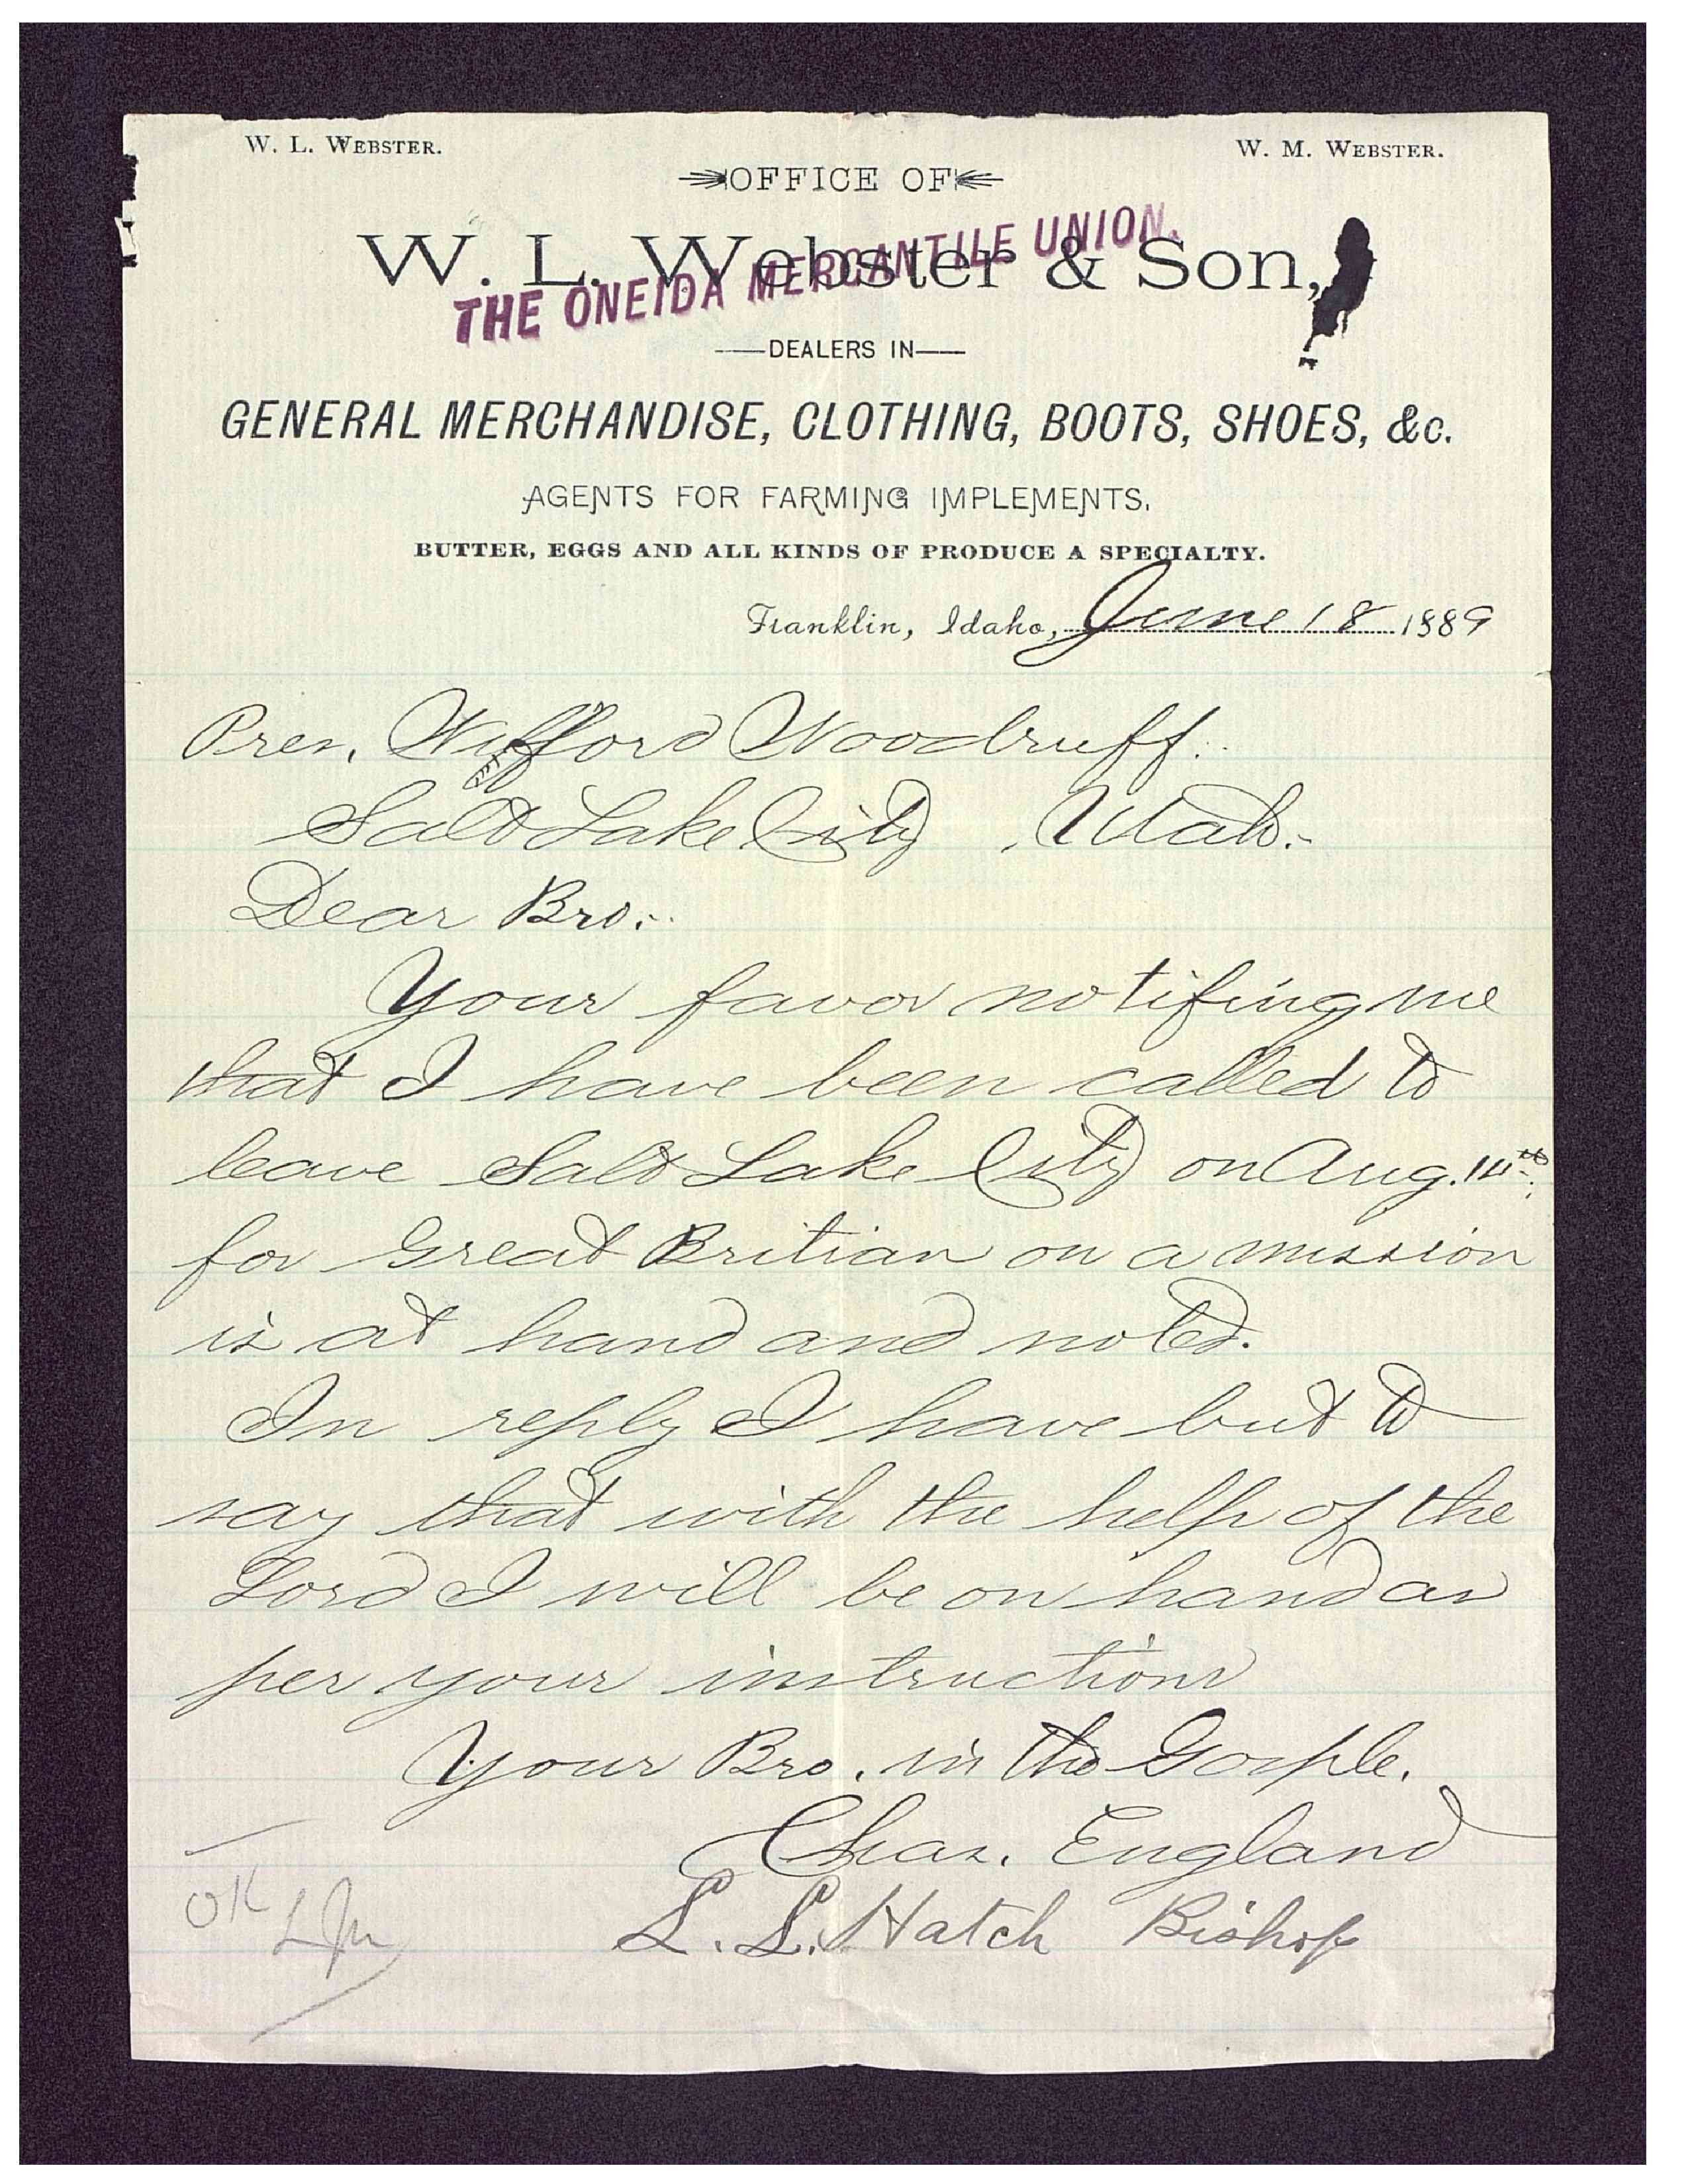 W. L. WEBSTER. W. M. WEBSTER.
OFFICE OF
W. L. Webster & Son,
THE ONEIDA MERCANTILE UNION.
DEALERS IN
GENERAL MERCHANDISE, CLOTHING, BOOTS, SHOES, &c.
AGENTS FOR FARMING IMPLEMENTS.
BUTTER, EGGS AND ALL KINDS OF PRODUCE A SPECIALTY.
Franklin, Idaho, June 18 1889
Pres. Wilford Woodruff.
Salt Lake City, Utah.
Dear Bro.
Your favor notifing me
that I have been called to
leave Salt Lake City on Aug. 14th
for Great Britian on a mission
is at hand and noted.
In reply I have but to
say that with the help of the
Lord I will be on hand as
per your instructions
Your Bro. in the Gosple.
Chas. England
L. L. Hatch Bishop
OK